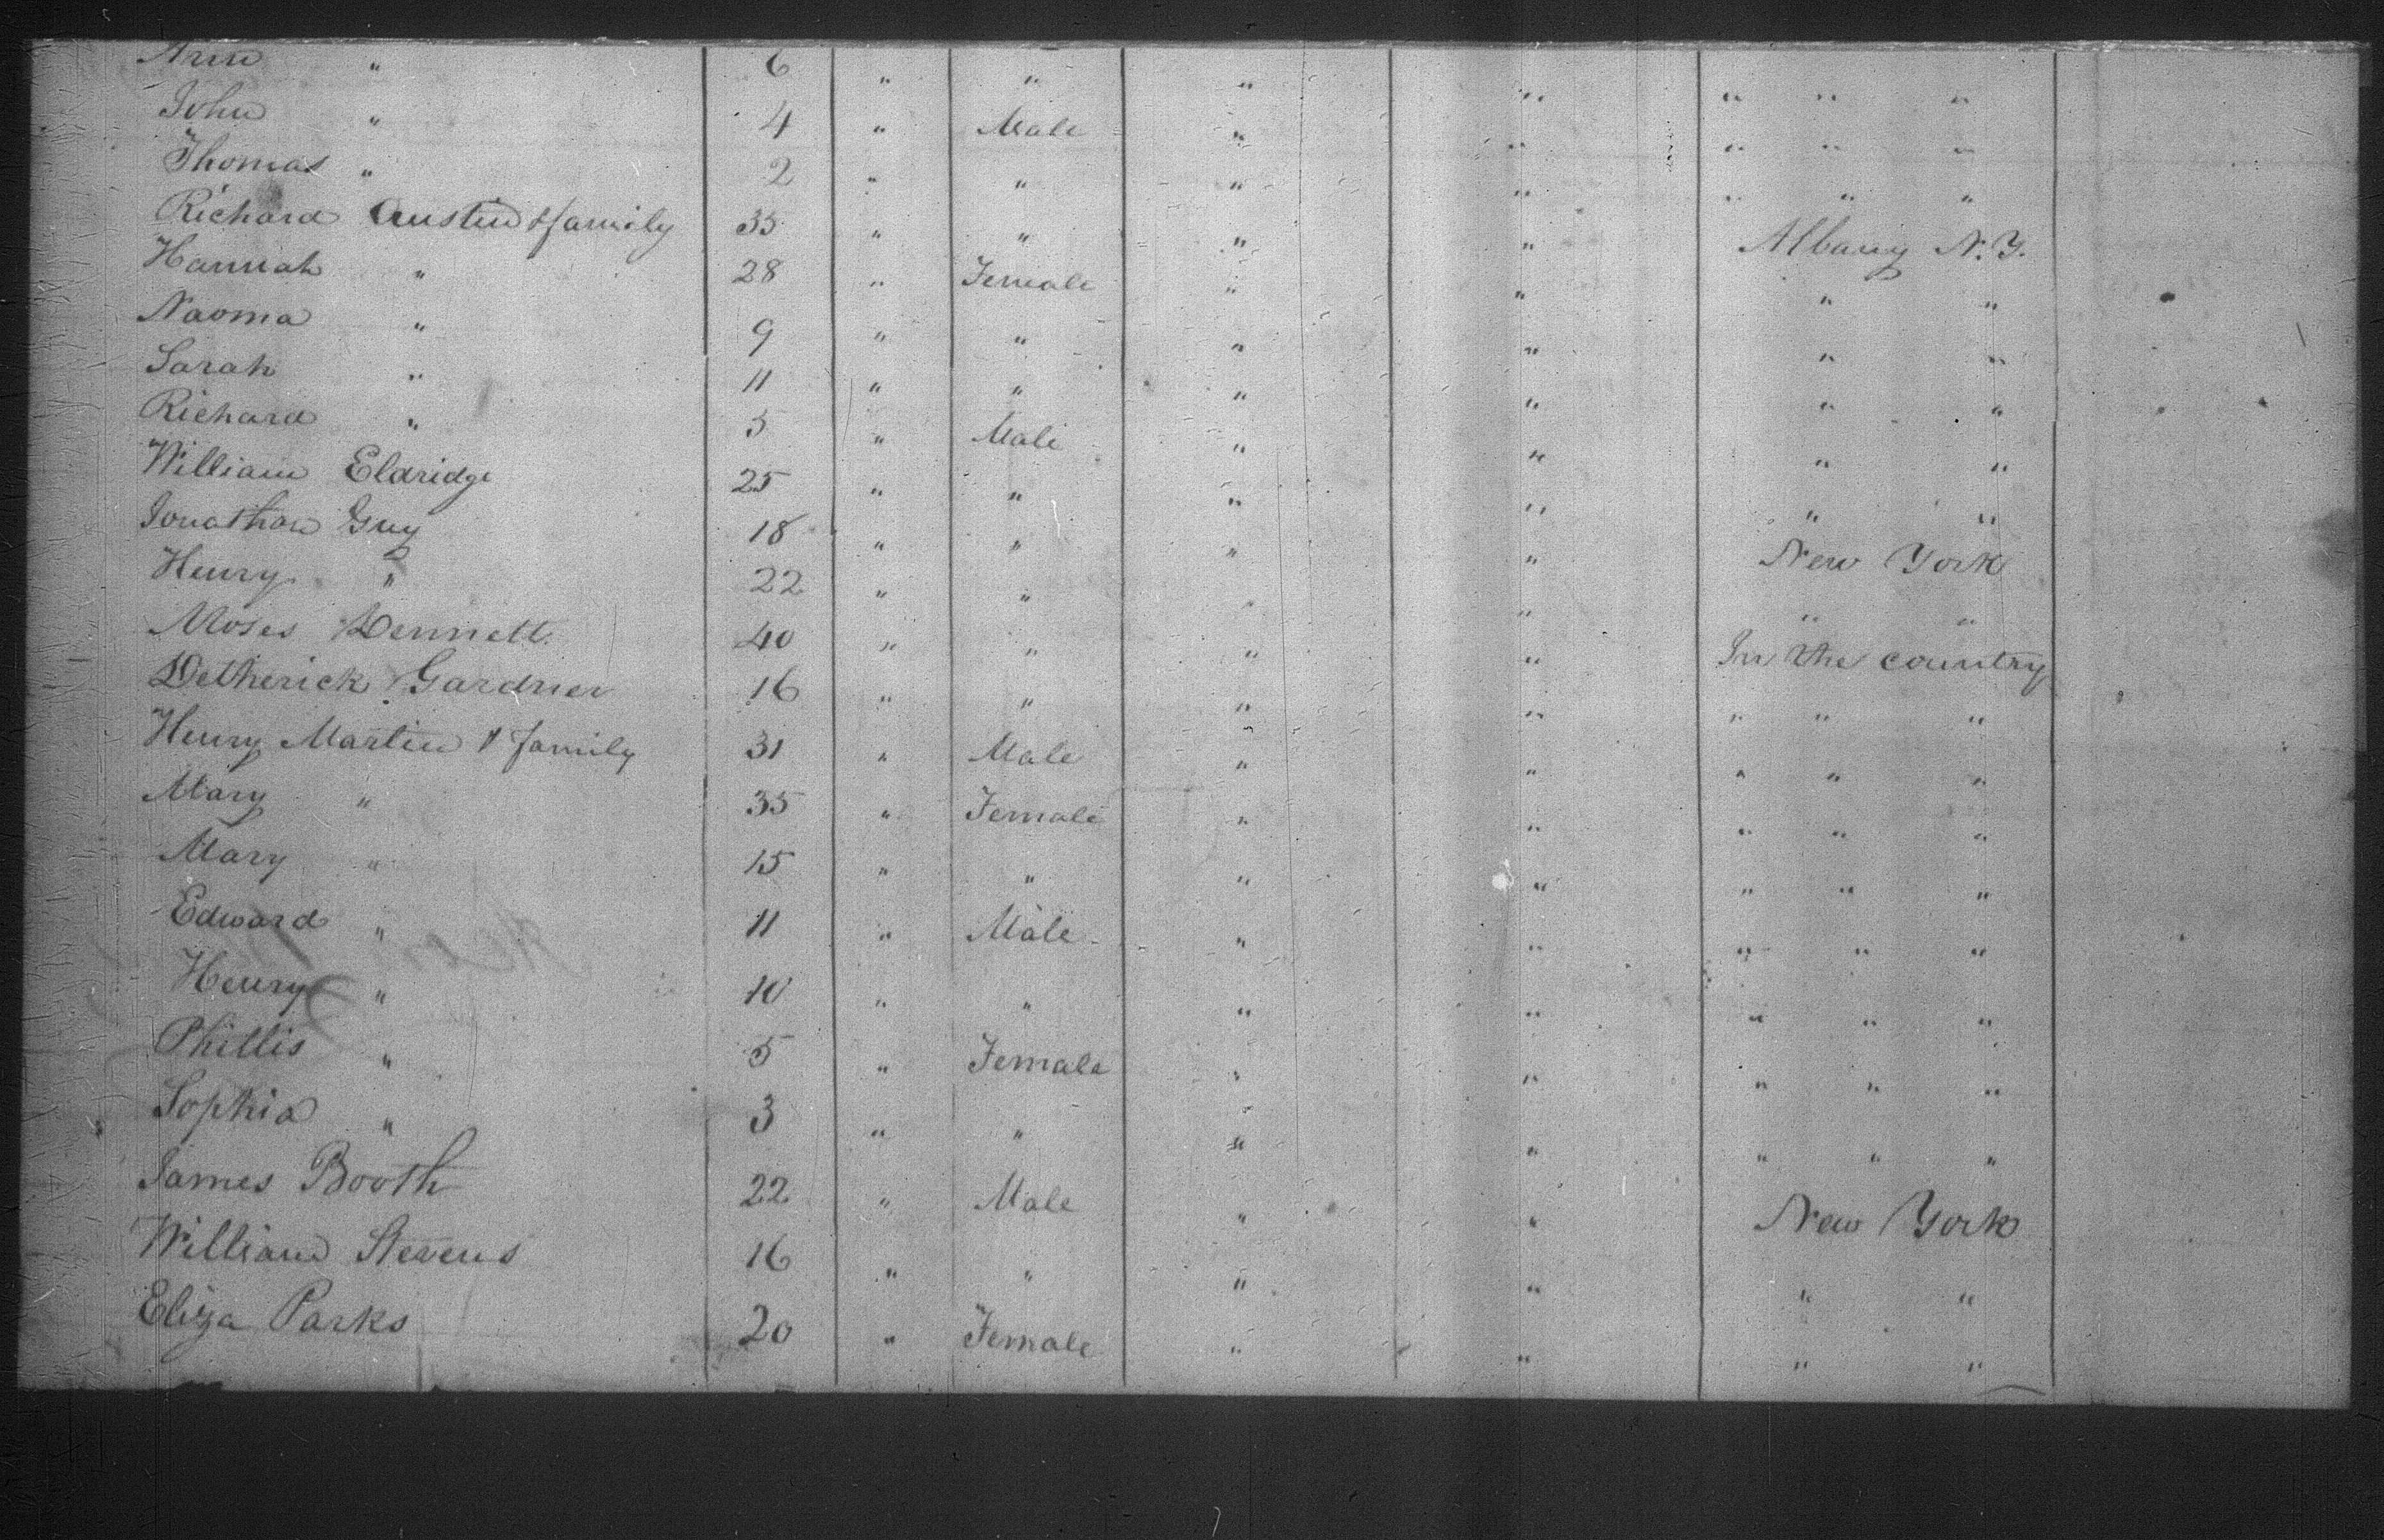 Ann " 6 " " " " " " "
John " 4 " Male " " " " "
Thomas " 2 " " " " " " "
Richard Austin & family 35 " " " " Albany N.Y.
Hannah " 28 " Female " " " "
Naoma " 9 " " " " " "
Sarah " 11 " " " " " "
Richard " 5 " Male " " " "
William Eldridge 25 " " " " " "
Jonathan Guy 18 " " " " New York
Henry " 22 " " " " " "
Moses Dennett 40 " " " " In the country
Detherick Gardner 16 " " " " " " "
Henry Martin & family 31 " Male " " " " "
Mary " 35 " Female " " " " "
Mary " 15 " " " " " " "
Edward " 11 " Male " " " " "
Henry " 10 " " " " " " "
Phillis " 5 " Female " " " " "
Sophia " 3 " " " " " " "
James Booth 22 " Male " " New York
William Stevens 16 " " " " " "
Eliza Parks 20 " Female " " " "